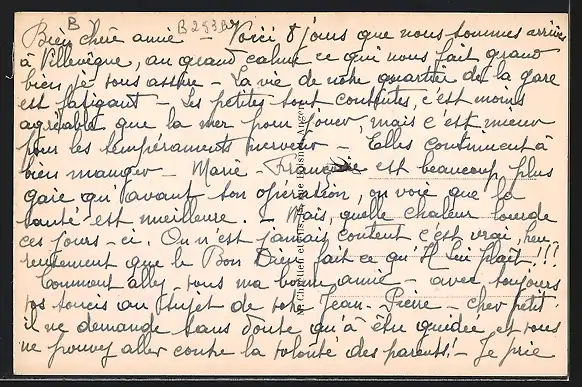 B
B 283 B
Bien chère amie - Voici 8 jours que nous sommes arrivés
à Villevêque, au grand calme ce qui nous fait grand
bien je vous assure - La vie de notre quartier de la gare
est fatigant - Les petites sont contentes, c'est moins
agréable que la mer pour jouer, mais c'est mieux
pour les tempéraments nerveux - Elles continuent à
bien manger - Marie-Françoise est beaucoup plus
gaie qu'avant son opération, on voit que la
santé est meilleure. - Mais, quelle chaleur lourde
ces jours-ci. On n'est jamais content c'est vrai, heu-
reusement que le Bon Dieu fait ce qu'Il Lui plaît!!!
Comment allez-vous ma bonne amie - avec toujours
vos soucis au sujet de votre Jean-Pierre - cher petit
il ne demande sans doute qu'à être guidé et vous
ne pouvez aller contre la volonté des parents! - Je prie
Chrétien et Fils, Angers